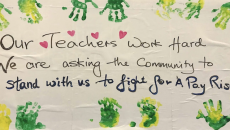 Our Teachers Work Hard
We are asking the Community to
stand with us to fight for A Pay Ris